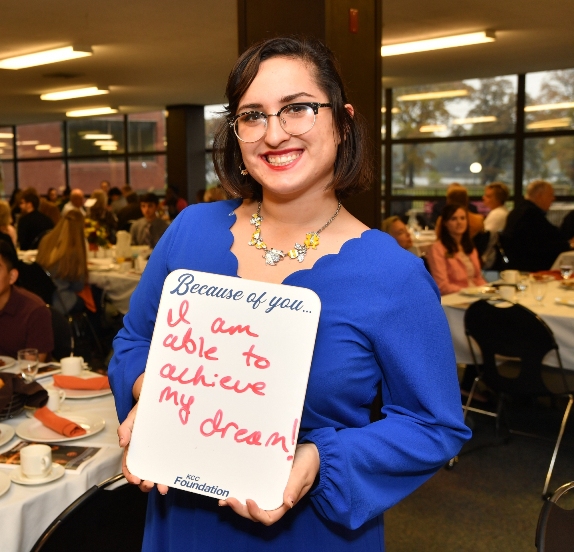 Because of you...
I am
able to
achieve
my dream!
KCC
Foundation